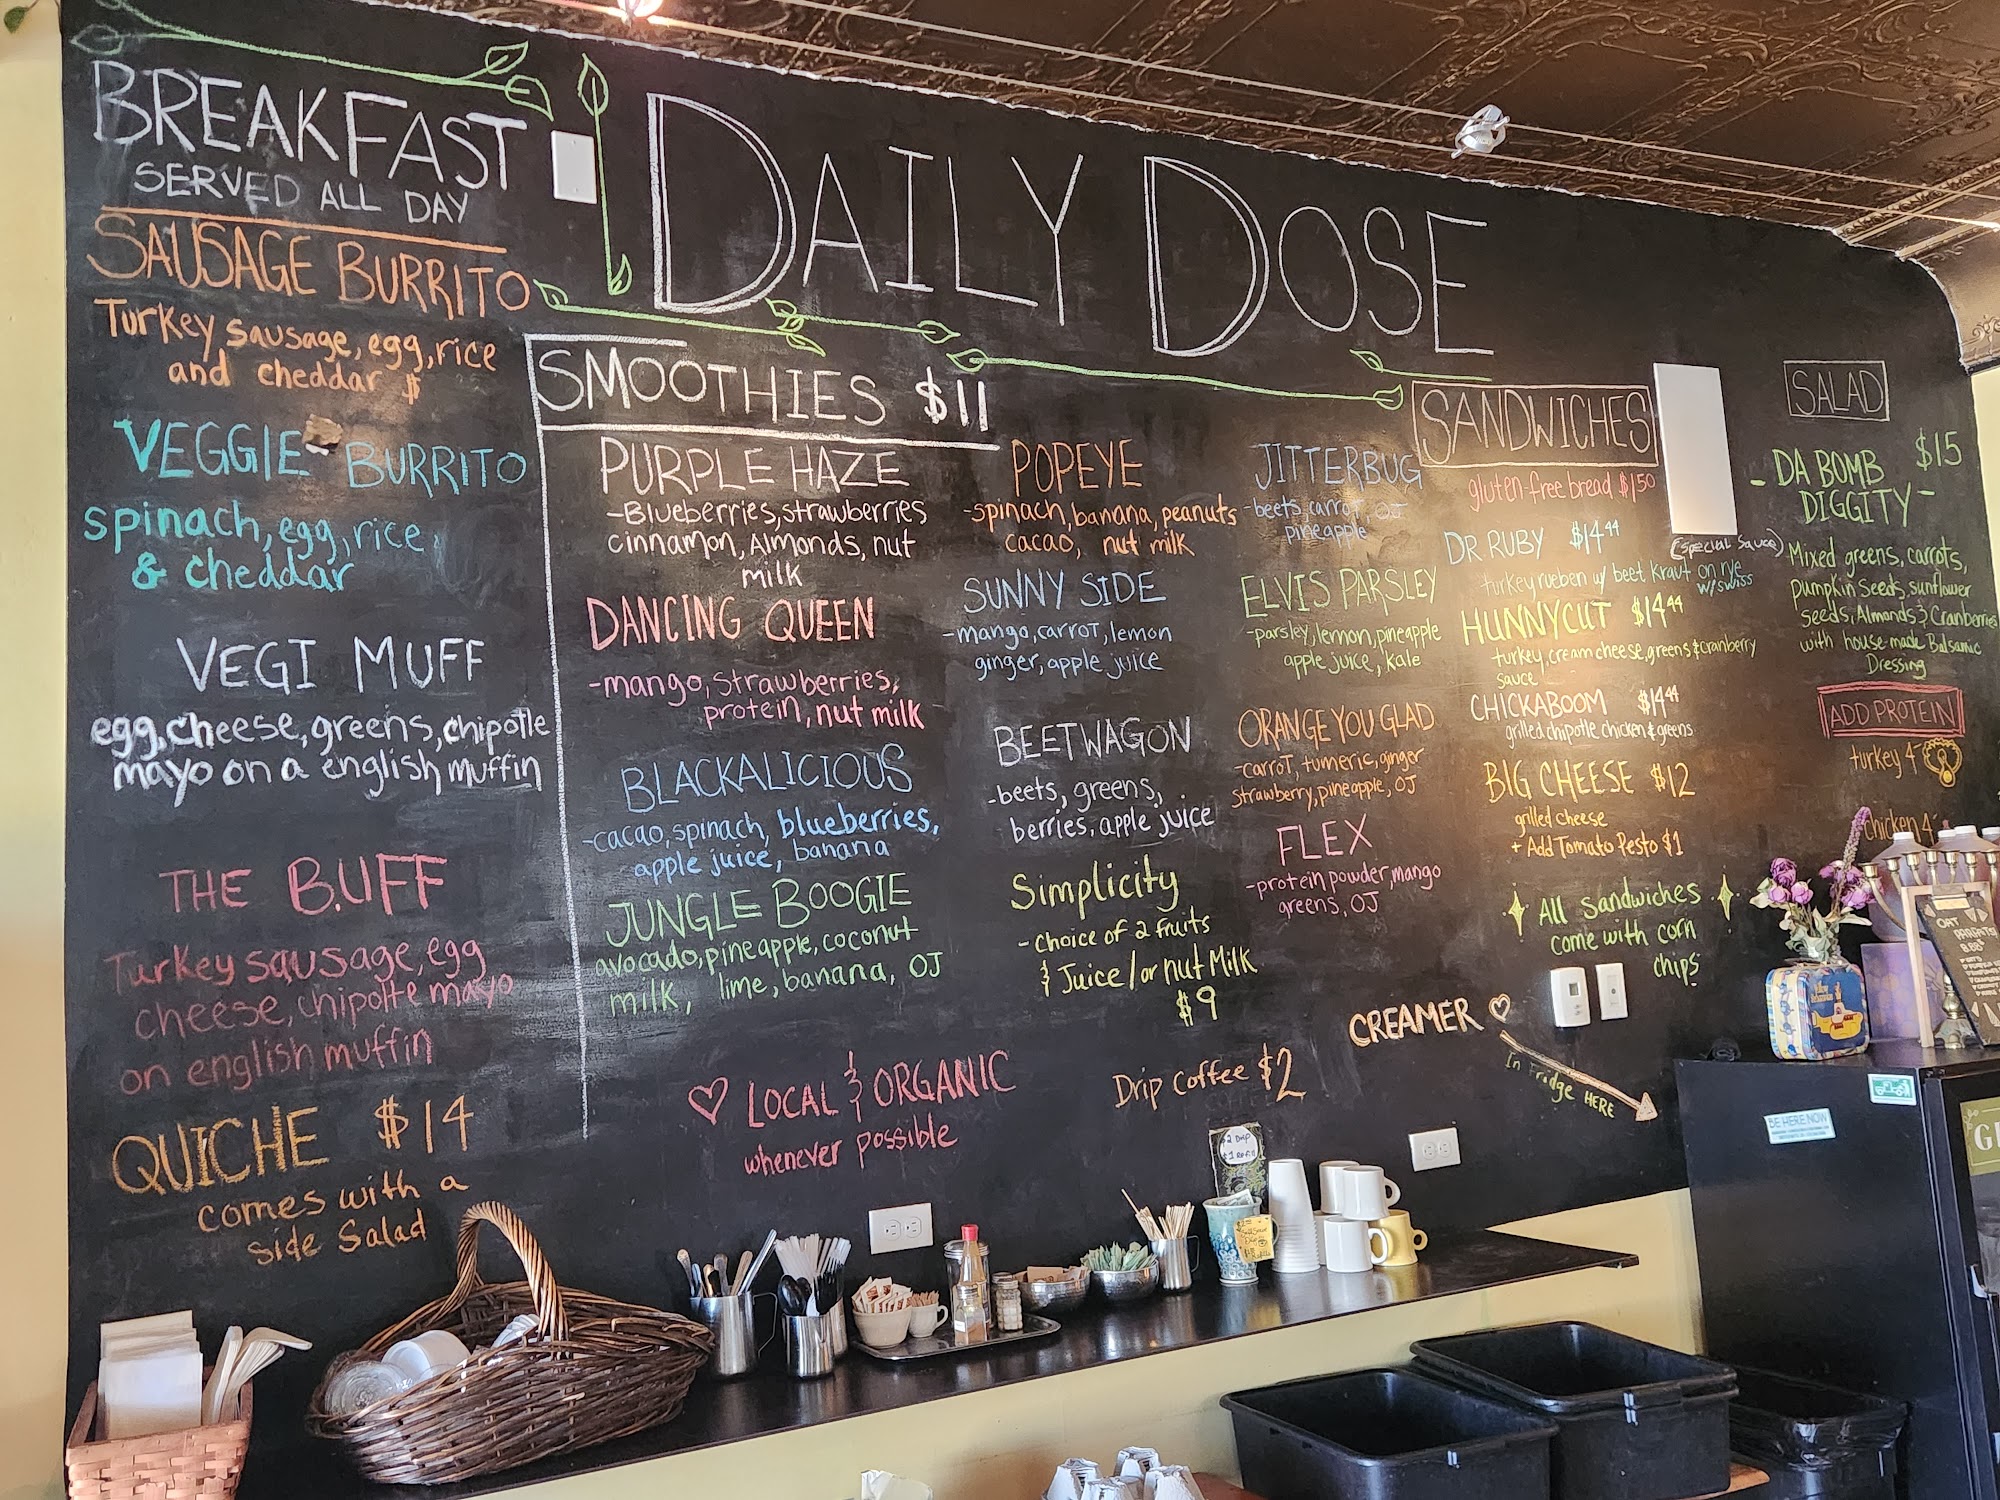 BREAKFAST
SERVED ALL DAY
SAUSAGE BURRITO
Turkey sausage, egg, rice
and cheddar $
VEGGIE BURRITO
spinach, egg, rice
& cheddar
VEGI MUFF
egg, cheese, greens, chipotle
mayo on a english muffin
THE B.UFF
Turkey sausage, egg
cheese, chipolte mayo
on english muffin
QUICHE $14
comes with a
side Salad
DAILY DOSE
SMOOTHIES $11
PURPLE HAZE
-Blueberries, strawberries
cinnamon, Almonds, nut
milk
DANCING QUEEN
-mango, strawberries,
protein, nut milk
BLACKALICIOUS
-cacao, spinach, blueberries,
apple juice, banana
JUNGLE BOOGIE
avocado, pineapple, coconut
milk, lime, banana, OJ
POPEYE
-spinach, banana, peanuts
cacao, nut milk
SUNNY SIDE
-mango, carrot, lemon
ginger, apple juice
BEETWAGON
-beets, greens,
berries, apple juice
Simplicity
-Choice of 2 fruits
& Juice/or nut Milk
$9
JITTERBUG
-beets, carrot, OJ
pineapple
ELVIS PARSLEY
-parsley, lemon, pineapple
apple juice, kale
ORANGE YOU GLAD
-carrot, tumeric, ginger
strawberry, pineapple, OJ
FLEX
-protein powder, mango
greens, OJ
♡ LOCAL & ORGANIC
whenever possible
Drip Coffee $2
CREAMER ♡
In Fridge HERE
SANDWICHES
gluten-free bread $1.50
DR RUBY $14.44
(special sauce)
turkey rueben w/ beet kraut on rye
w/swiss
HUNNYCUT $14.44
turkey, cream cheese, greens & cranberry
sauce
CHICKABOOM $14.44
grilled chipotle chicken & greens
BIG CHEESE $12
grilled cheese
+ Add Tomato Pesto $1
All sandwiches
come with corn
chips
SALAD
- DA BOMB $15
DIGGITY -
Mixed greens, carrots,
pumpkin seeds, sunflower
seeds, Almonds & Cranberries
with house-made Balsamic
Dressing
ADD PROTEIN
turkey 4
chicken 4
$2 Drip
$1 Refill
BE HERE NOW